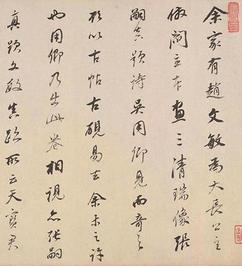 余家有趙文敏為大長公主
倣閻立本畫三清瑞像張
嗣真題詩吳用卿見而奇之
以古帖古硯易去余未之許
也用卿乃出此卷相視亦張嗣
真題文敏真跡所云天寶君